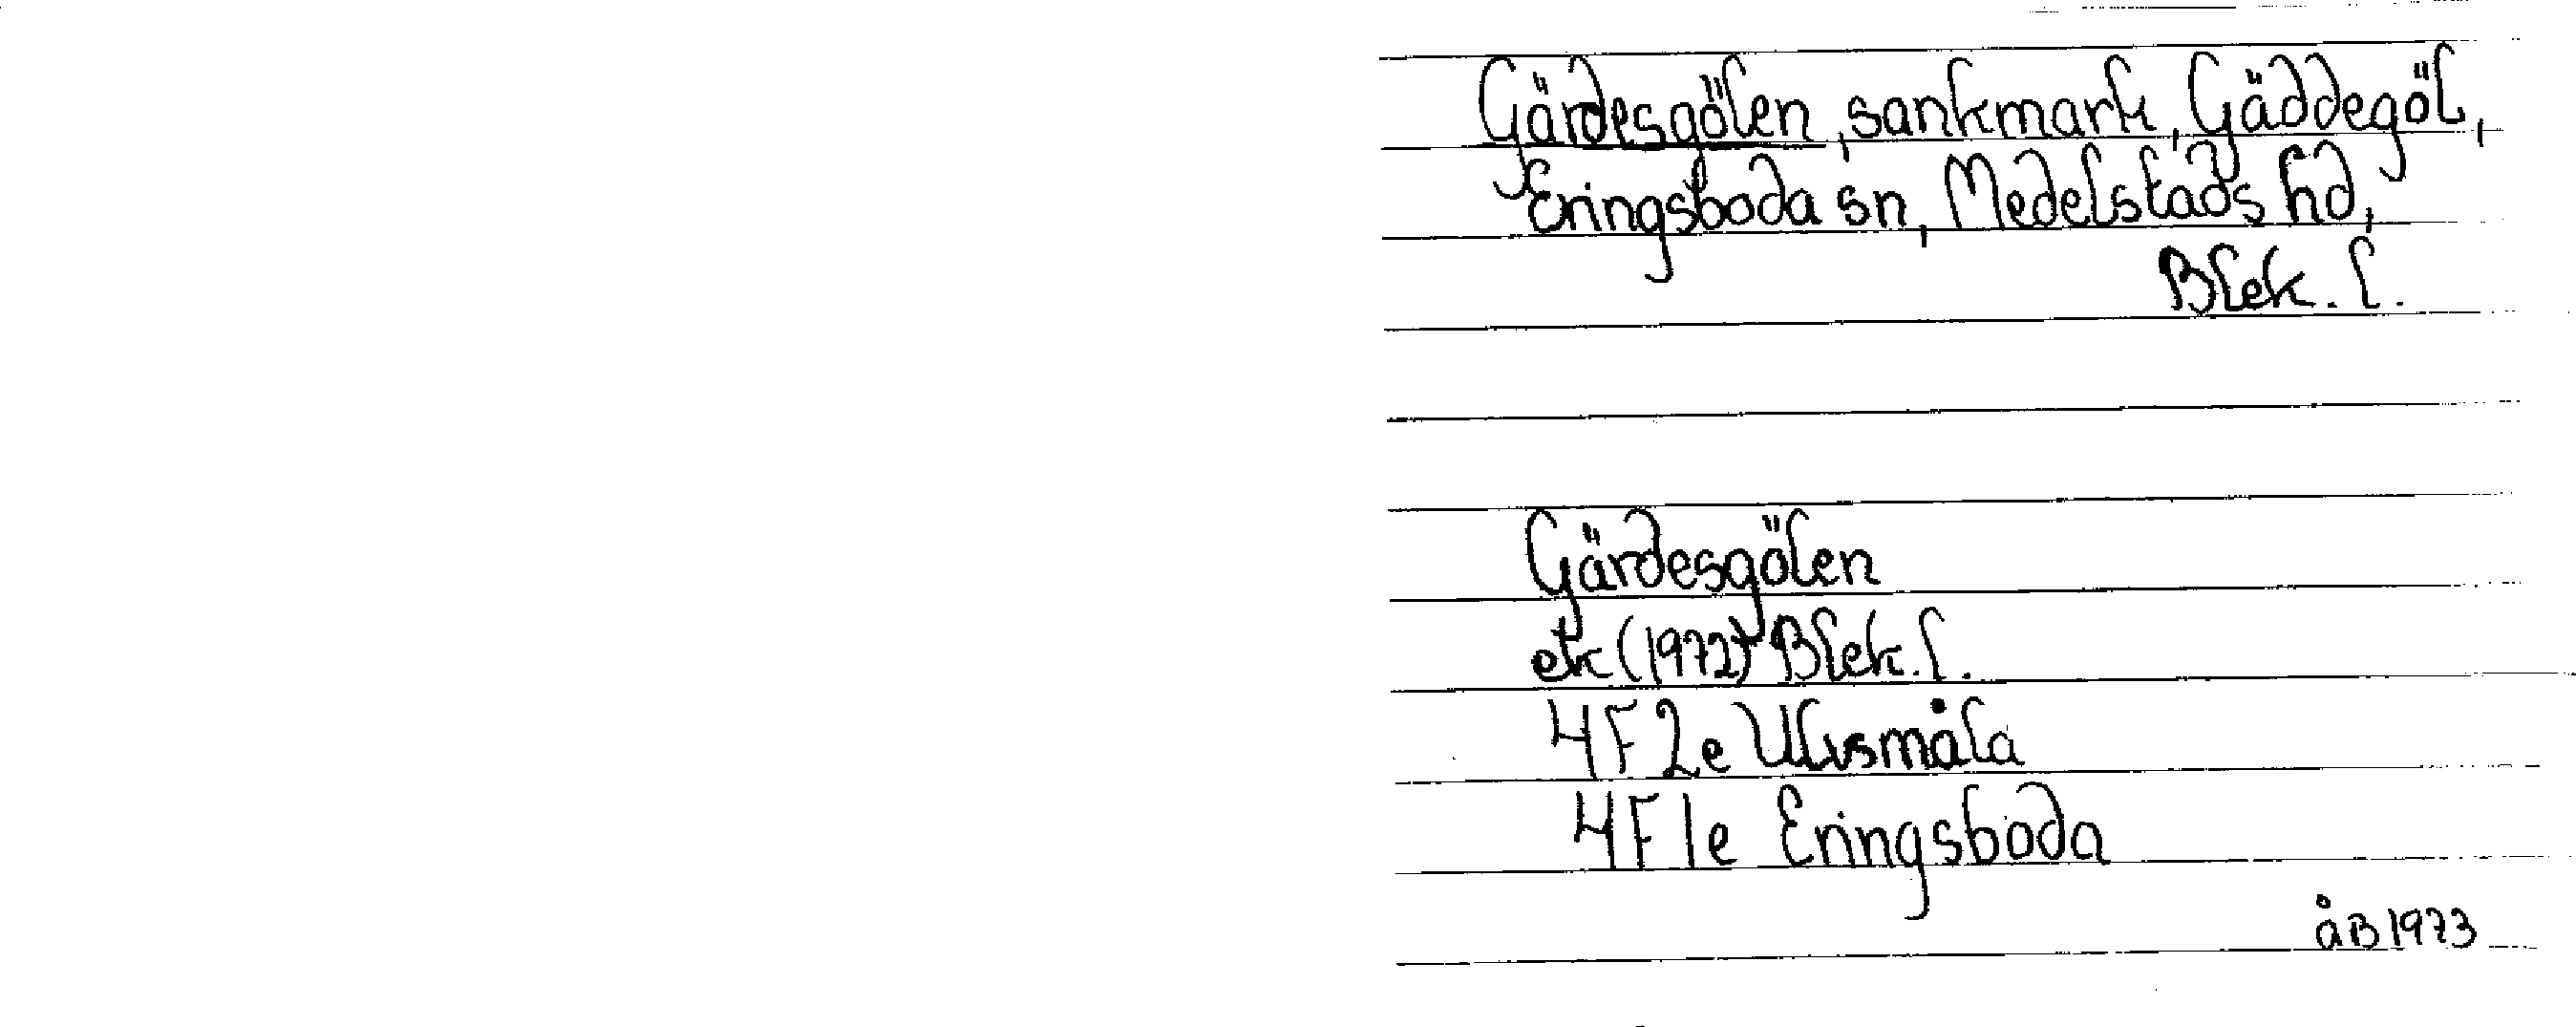 Gärdesgölen, sankmark, Gäddegöl,
Eringsboda sn, Medelstads hd,
Blek. l.
Gärdesgölen
ek (1972) Blek. l.
4F 2e Ulvsmåla
4F 1e Eringsboda
åB 1973